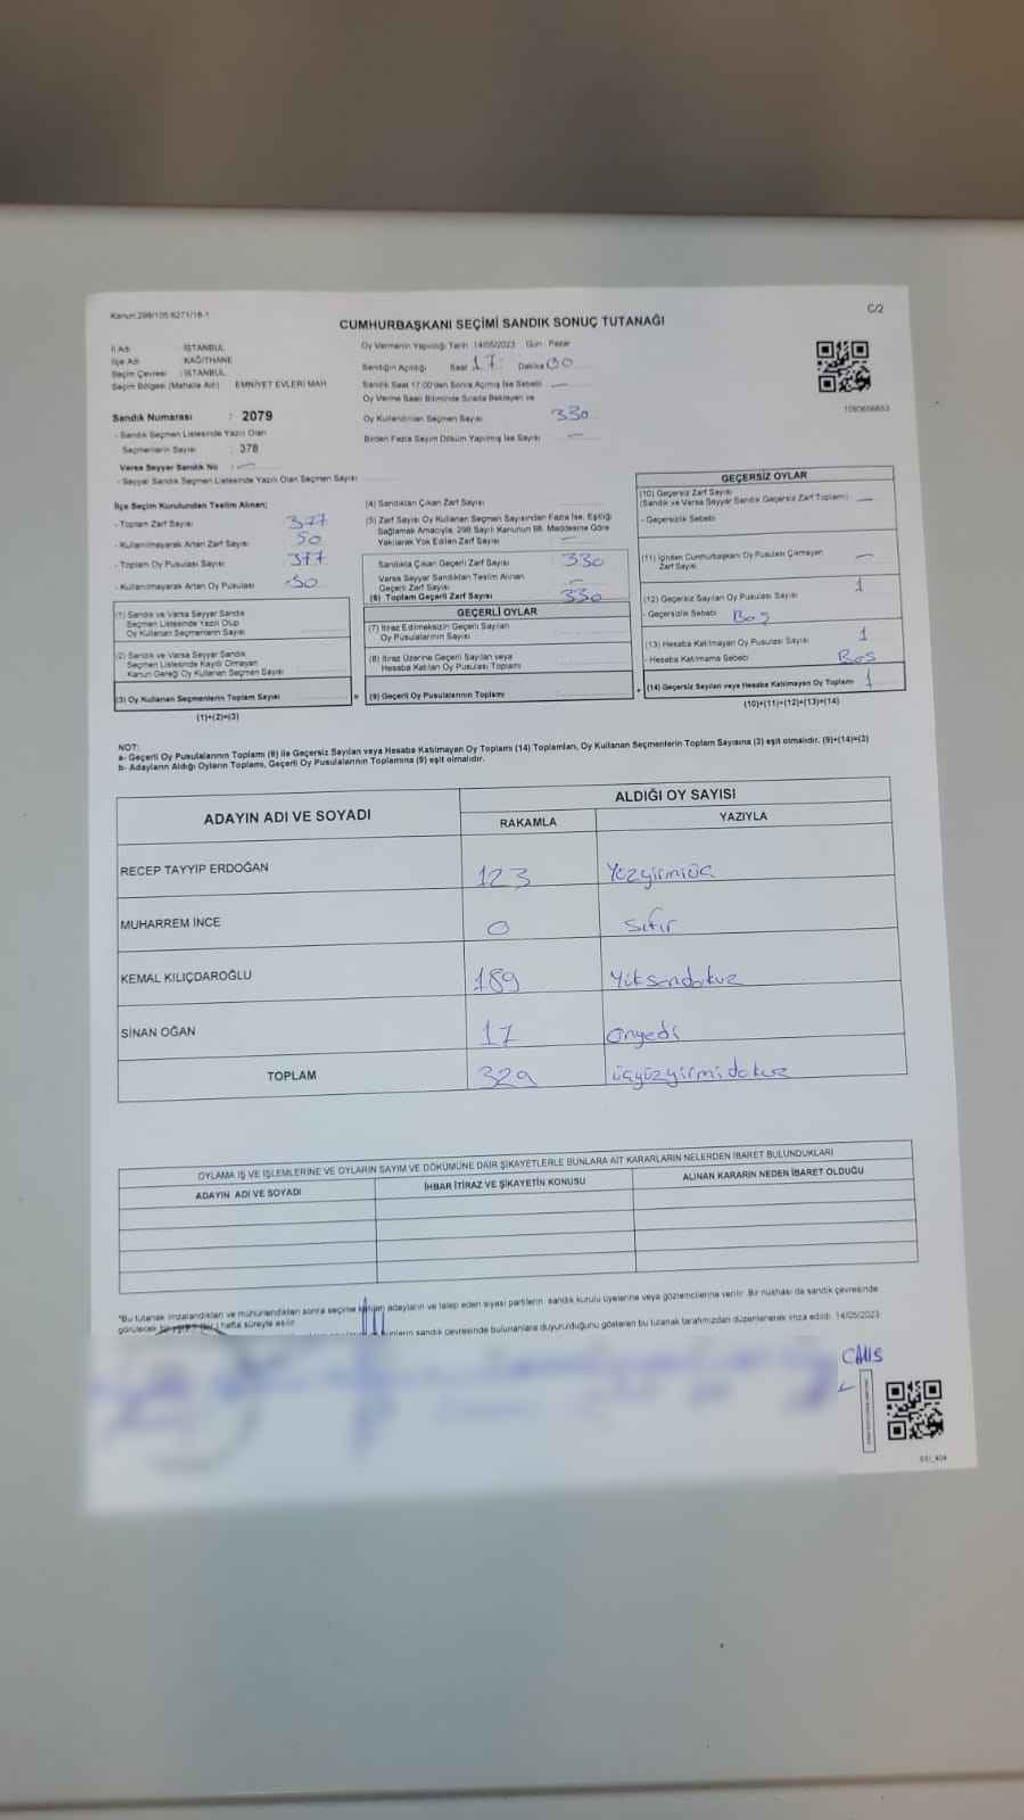 Kanun:298/105 6271/18-1
C/2
CUMHURBAŞKANI SEÇİMİ SANDIK SONUÇ TUTANAĞI
İl Adı : İSTANBUL
İlçe Adı : KAĞITHANE
Seçim Çevresi : İSTANBUL
Seçim Bölgesi (Mahalle Adı) : EMNİYET EVLERİ MAH
Sandık Numarası : 2079
- Sandık Seçmen Listesinde Yazılı Olan
Seçmenlerin Sayısı : 378
Varsa Seyyar Sandık No : —
- Seyyar Sandık Seçmen Listesinde Yazılı Olan Seçmen Sayısı
Oy Vermenin Yapıldığı Tarih : 14/05/2023 Gün : Pazar
Sandığın Açıldığı Saat 17 Dakika 00
Sandık Saat 17:00'den Sonra Açılmış İse Sebebi —
Oy Verme Saati Bitiminde Sırada Bekleyen ve
Oy Kullandırılan Seçmen Sayısı 330
Birden Fazla Sayım Döküm Yapılmış İse Sayısı —
İlçe Seçim Kurulundan Teslim Alınan;
- Toplam Zarf Sayısı 377
- Kullanılmayarak Artan Zarf Sayısı 50
- Toplam Oy Pusulası Sayısı 377
- Kullanılmayarak Artan Oy Pusulası 50
(1) Sandık ve Varsa Seyyar Sandık
Seçmen Listesinde Yazılı Olup
Oy Kullanan Seçmenlerin Sayısı
(2) Sandık ve Varsa Seyyar Sandık
Seçmen Listesinde Kayıtlı Olmayan
Kanun Gereği Oy Kullanan Seçmen Sayısı
(3) Oy Kullanan Seçmenlerin Toplam Sayısı
(1)+(2)=(3)
(4) Sandıktan Çıkan Zarf Sayısı
(5) Zarf Sayısı Oy Kullanan Seçmen Sayısından Fazla İse, Eşitliği
Sağlamak Amacıyla, 298 Sayılı Kanunun 98. Maddesine Göre
Yakılarak Yok Edilen Zarf Sayısı —
Sandıkta Çıkan Geçerli Zarf Sayısı 330
Varsa Seyyar Sandıktan Teslim Alınan
Geçerli Zarf Sayısı —
(6) Toplam Geçerli Zarf Sayısı 330
GEÇERLİ OYLAR
(7) İtiraz Edilmeksizin Geçerli Sayılan
Oy Pusulalarının Sayısı
(8) İtiraz Üzerine Geçerli Sayılan veya
Hesaba Katılan Oy Pusulası Toplamı
(9) Geçerli Oy Pusulalarının Toplamı
GEÇERSİZ OYLAR
(10) Geçersiz Zarf Sayısı
(Sandık ve Varsa Seyyar Sandık Geçersiz Zarf Toplamı) —
- Geçersizlik Sebebi
(11) İçinden Cumhurbaşkanı Oy Pusulası Çıkmayan
Zarf Sayısı —
(12) Geçersiz Sayılan Oy Pusulası Sayısı 1
- Geçersizlik Sebebi Boş
(13) Hesaba Katılmayan Oy Pusulası Sayısı 1
- Hesaba Katılmama Sebebi Boş
(14) Geçersiz Sayılan veya Hesaba Katılmayan Oy Toplamı 1
(10)+(11)+(12)+(13)=(14)
NOT:
a- Geçerli Oy Pusulalarının Toplamı (9) ile Geçersiz Sayılan veya Hesaba Katılmayan Oy Toplamı (14) Toplamları, Oy Kullanan Seçmenlerin Toplam Sayısına (3) eşit olmalıdır. (9)+(14)=(3)
b- Adayların Aldığı Oyların Toplamı, Geçerli Oy Pusulalarının Toplamına (9) eşit olmalıdır.
ADAYIN ADI VE SOYADI
ALDIĞI OY SAYISI
RAKAMLA YAZIYLA
RECEP TAYYİP ERDOĞAN 123 Yüzyirmiüç
MUHARREM İNCE 0 sıfır
KEMAL KILIÇDAROĞLU 189 Yüksendokuz
SİNAN OĞAN 17 onyedi
TOPLAM 329 üçyüzyirmidokuz
OYLAMA İŞ VE İŞLEMLERİNE VE OYLARIN SAYIM VE DÖKÜMÜNE DAİR ŞİKAYETLERLE BUNLARA AİT KARARLARIN NELERDEN İBARET BULUNDUKLARI
ADAYIN ADI VE SOYADI İHBAR İTİRAZ VE ŞİKAYETİN KONUSU ALINAN KARARIN NEDEN İBARET OLDUĞU
"Bu tutanak imzalandıktan ve mühürlendikten sonra seçime katılan adayların ve talep eden siyasi partilerin sandık kurulu üyelerine veya gözlemcilerine verilir. Bir nüshası da sandık çevresinde
görülecek bir yere hafta süreyle asılır
sandık çevresinde bulunanlara duyurulduğunu gösteren bu tutanak tarafımızdan düzenlenerek imza edildi. 14/05/2023